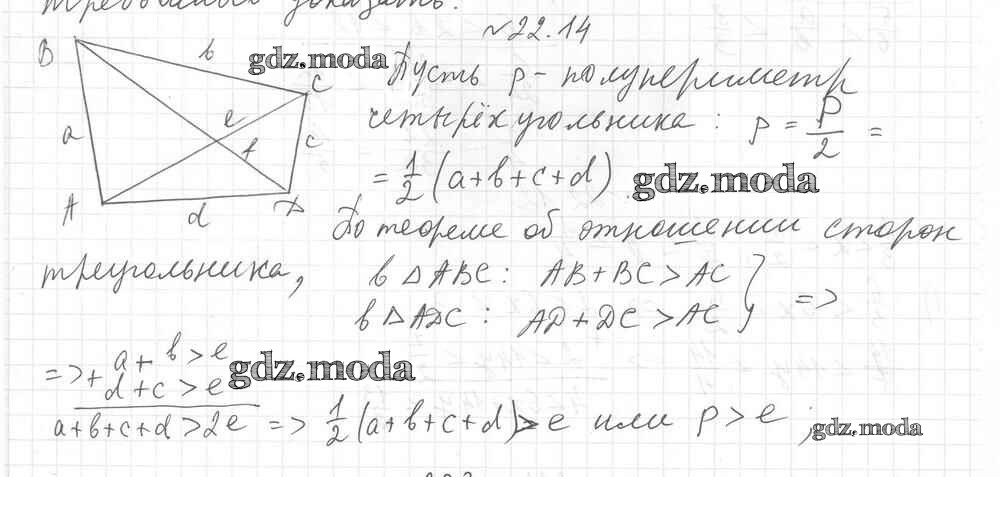 требовалось доказать.
№22.14
B b C a e f c A d D
gdz.moda
Пусть p - полупериметр
четырёхугольника: p = P/2 =
= 1/2 (a+b+c+d).
gdz.moda
По теореме об отношении сторон
треугольника,
в △ABC: AB+BC>AC
в △ADC: AD+DC>AC } =>
=> + a+b>e
d+c>e
gdz.moda
a+b+c+d>2e => 1/2 (a+b+c+d)>e или p>e;
gdz.moda